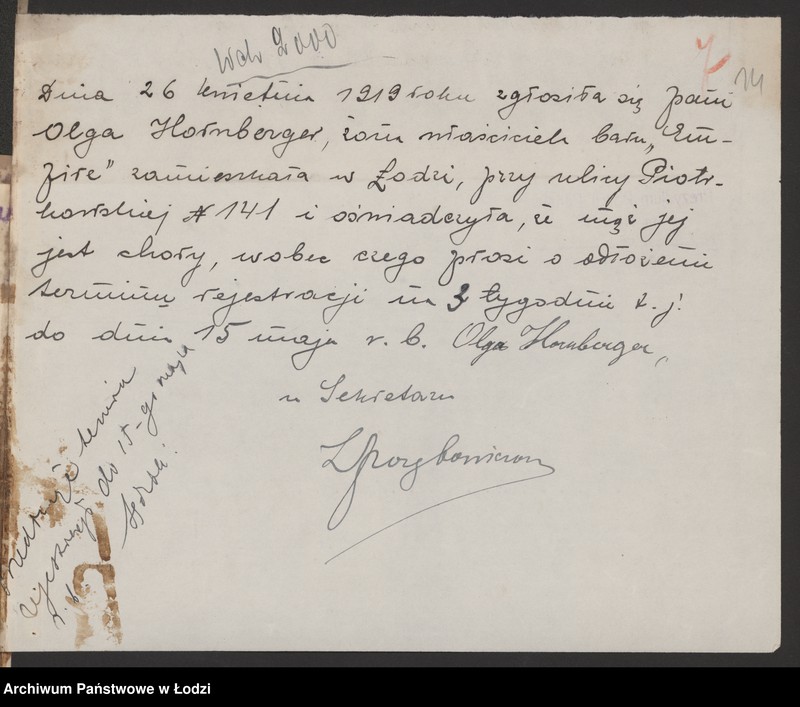 2000
7
14
Dnia 26 kwietnia 1919 roku zgłosiła się pani
Olga Hornberger, żona właściciela baru „Em-
pire" zamieszkała w Łodzi, przy ulicy Piotr-
kowskiej № 141 i oświadczyła, że mąż jej
jest chory, wobec czego prosi o odłożenie
terminu rejestracji na 3 tygodnie t.j.
do dnia 15 maja r. b. Olga Hornberger,
Sekretarz
termin
rejestracji do 15-go maja
r. b.
Archiwum Państwowe w Łodzi